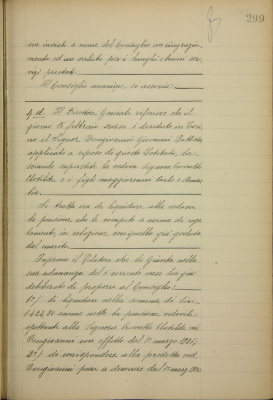 299
sia inviato a nome del Consiglio un ringrazia-
mento ed un saluto per i lunghi e buoni ser-
vigi prestati.
Il Consiglio unanime, si associa.
4 d. Il Direttore Generale riferisce che il
giorno 15 febbraio scorso è deceduto in Tori-
no il Signor Bongiovanni Giovanni Battista
applicato a riposo di questo Istituto, la-
sciando superstiti la vedova Signora
Clotilde e i figli maggiorenni Carlo e
Si tratta ora di liquidare alla vedova
la pensione che le compete a norma di rego-
lamento, in relazione con quella già goduta
dal marito.
Informa il Relatore che la Giunta nella
sua adunanza del 5 corrente mese ha già
deliberato di proporre al Consiglio:
1°) di liquidare nella somma di lire
1422,80 annue nette la pensione vedovile
spettante alla Signora Clotilde ved.
Bongiovanni con effetto dal 1° marzo
2°) di corrispondere alla predetta ved.
Bongiovanni pure a decorrere dal 1° marzo